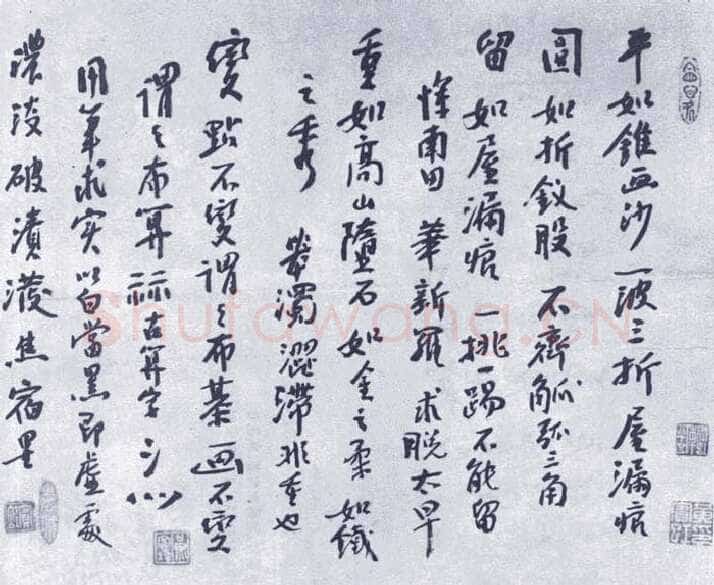 平如錐画沙 一波三折 屋漏痕
圓如折釵股 不齊觚弧三角
留如屋漏痕 一挑一踢不能留
惲南田 華新羅 求脱太早
重如高山墜石 如金之柔 如鐵
之秀 濁澀滯非重也
變 點不變謂之布棊 画不變
謂之布算 祘古算字
用筆求实 以白當黑 即虛處
濃淡破漬潑焦宿墨
Shufawang.CN